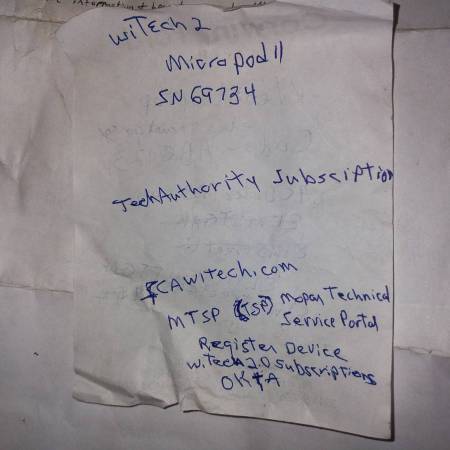 wiTech 2
Micropod II
SN 69734
TechAuthority Subscription
FCAwitech.com
MTSP (TSP) Mopar Technical
Service Portal
Register Device
wiTech 2.0 Subscriptions
OKTA